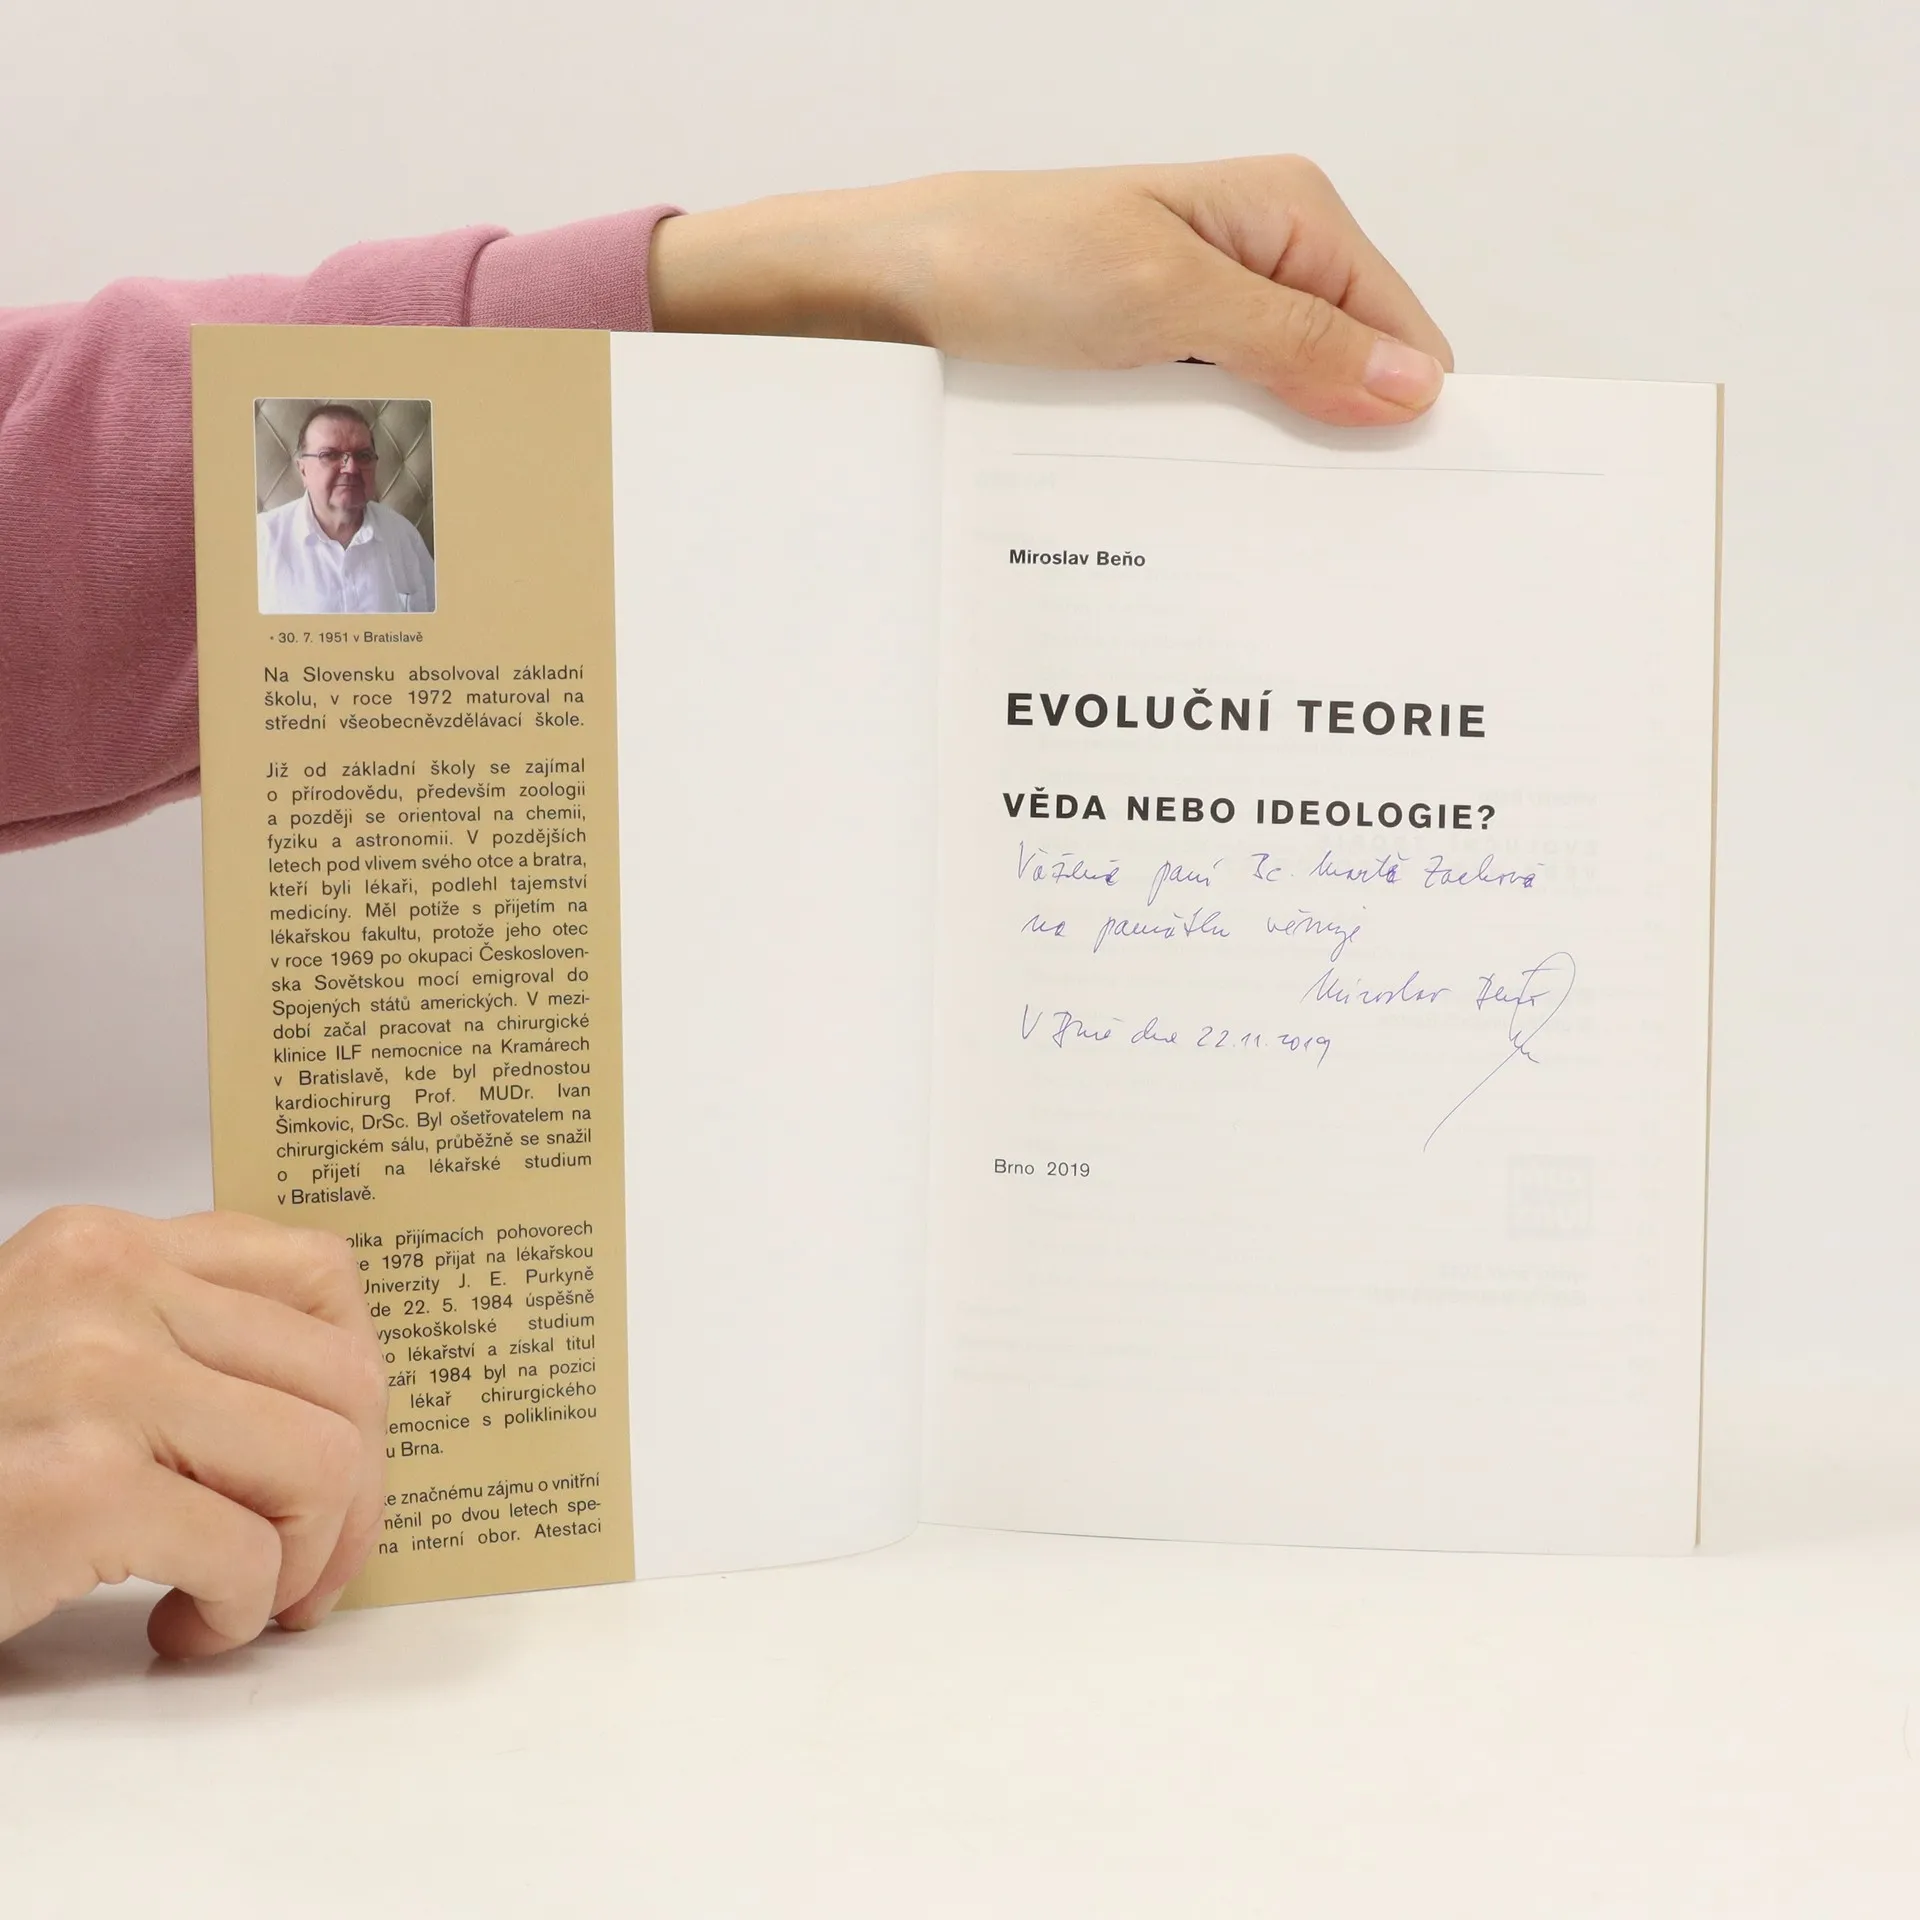 • 30. 7. 1951 v Bratislavě
Na Slovensku absolvoval základní
školu, v roce 1972 maturoval na
střední všeobecněvzdělávací škole.
Již od základní školy se zajímal
o přírodovědu, především zoologii
a později se orientoval na chemii,
fyziku a astronomii. V pozdějších
letech pod vlivem svého otce a bratra,
kteří byli lékaři, podlehl tajemství
medicíny. Měl potíže s přijetím na
lékařskou fakultu, protože jeho otec
v roce 1969 po okupaci Českosloven-
ska Sovětskou mocí emigroval do
Spojených států amerických. V mezi-
dobí začal pracovat na chirurgické
klinice ILF nemocnice na Kramárech
v Bratislavě, kde byl přednostou
kardiochirurg Prof. MUDr. Ivan
Šimkovic, DrSc. Byl ošetřovatelem na
chirurgickém sálu, průběžně se snažil
o přijetí na lékařské studium
v Bratislavě.
přijímacích pohovorech
1978 přijat na lékařskou
Univerzity J. E. Purkyně
22. 5. 1984 úspěšně
vysokoškolské studium
lékařství a získal titul
září 1984 byl na pozici
lékař chirurgického
nemocnice s poliklinikou
u Brna.
značnému zájmu o vnitřní
po dvou letech spe-
na interní obor. Atestaci
Miroslav Beňo
EVOLUČNÍ TEORIE
VĚDA NEBO IDEOLOGIE?
Vážená paní Bc. Marta
na památku věnuje
Miroslav Beňo
V Brně dne 22.11.2019
Brno 2019